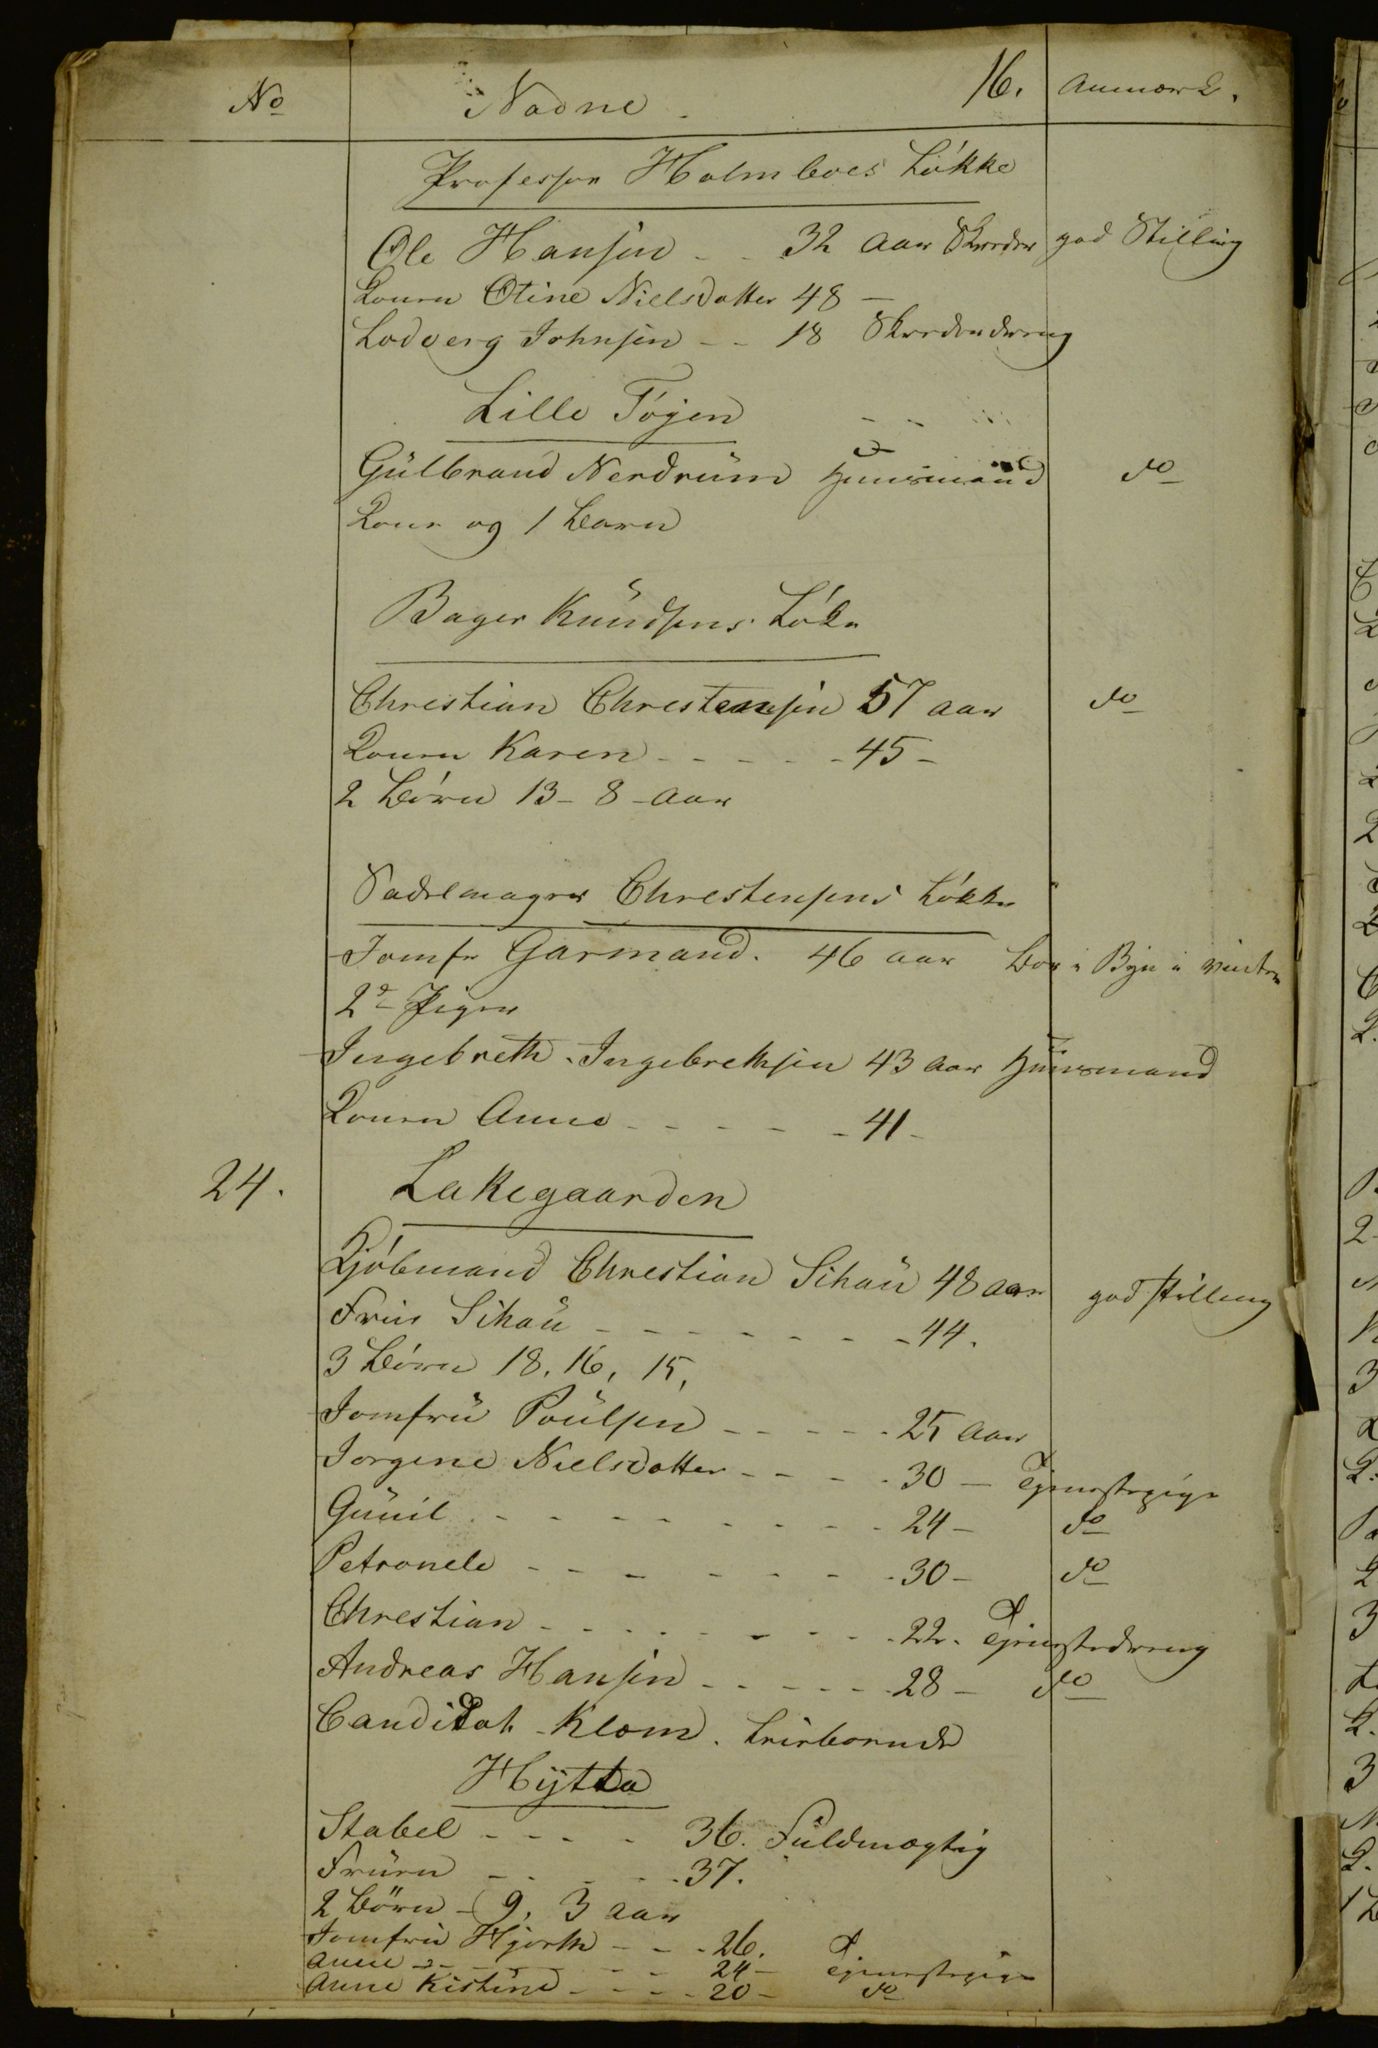 No Navne. 16. Anmærk.
Professor Holmboes Løkke
Ole Hansen - - 32 Aar Skreder god Stilling
Konen Otine Nielsdatter 48 -
Lodverg Johnsen - - 18 Skrederdreng
Lille Tøjen
Gulbrand Nerdrum Huusmand do
Kone og 1 barn
Bager Knudsens Løke
Christian Christensen 57 aar do
Konen Karen - - - - - 45 -
2 børn 13 - 8 - aar
Sadelmager Christensens Løkke
Jomfr Garmand. 46 aar boer i Byn i vinter
2de Piger
Ingebreth Ingebrethsen 43 aar Huusmand
Konen Anne - - - - - 41 -
24. Lakegaarden
Kjøbmand Christian Schau 48 aar god stilling
Frue Schau - - - - - - - 44.
3 børn 18. 16, 15,
Jomfru Poulsen - - - - - 25 aar
Jorgine Nielsdatter - - - - 30 - Tjenestepige
Gunil - - - - - - - - - 24 - do
Petronele - - - - - - - 30 - do
Christian - - - - - - - - 22. Tjenestedreng
Andreas Hansen - - - - - 28 - do
Candidat Klom.
Hytta
Stabel - - - - 36. Fuldmægtig
Fruen - - - - - 37.
2 børn - 9, 3 aar
Jomfru Hjorth - - - 26.
Anne - - - - - - 24 - Tjenestepige
Anne Kistine - - - - 20 - do